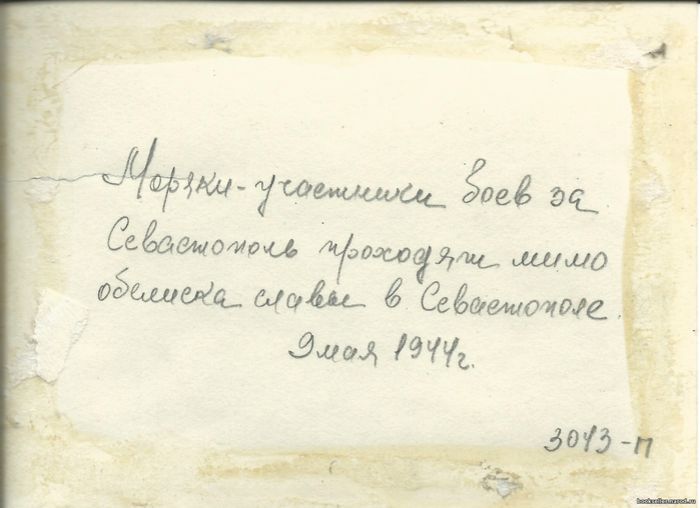 Моряки-участники боев за
Севастополь проходят мимо
обелиска славы в Севастополе.
9 мая 1944г.
3043-п
bookseller.narod.ru